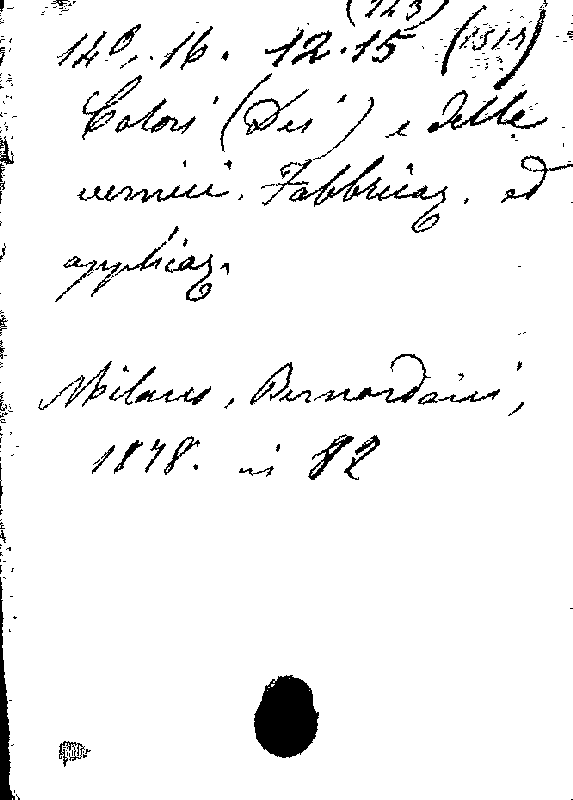 (143)
140. 16. 12.15 (1515)
Colori (Dei) e delle
vernici. Fabbricaz. ed
applicaz.
Milano, Bernardoni,
1878. in 8º